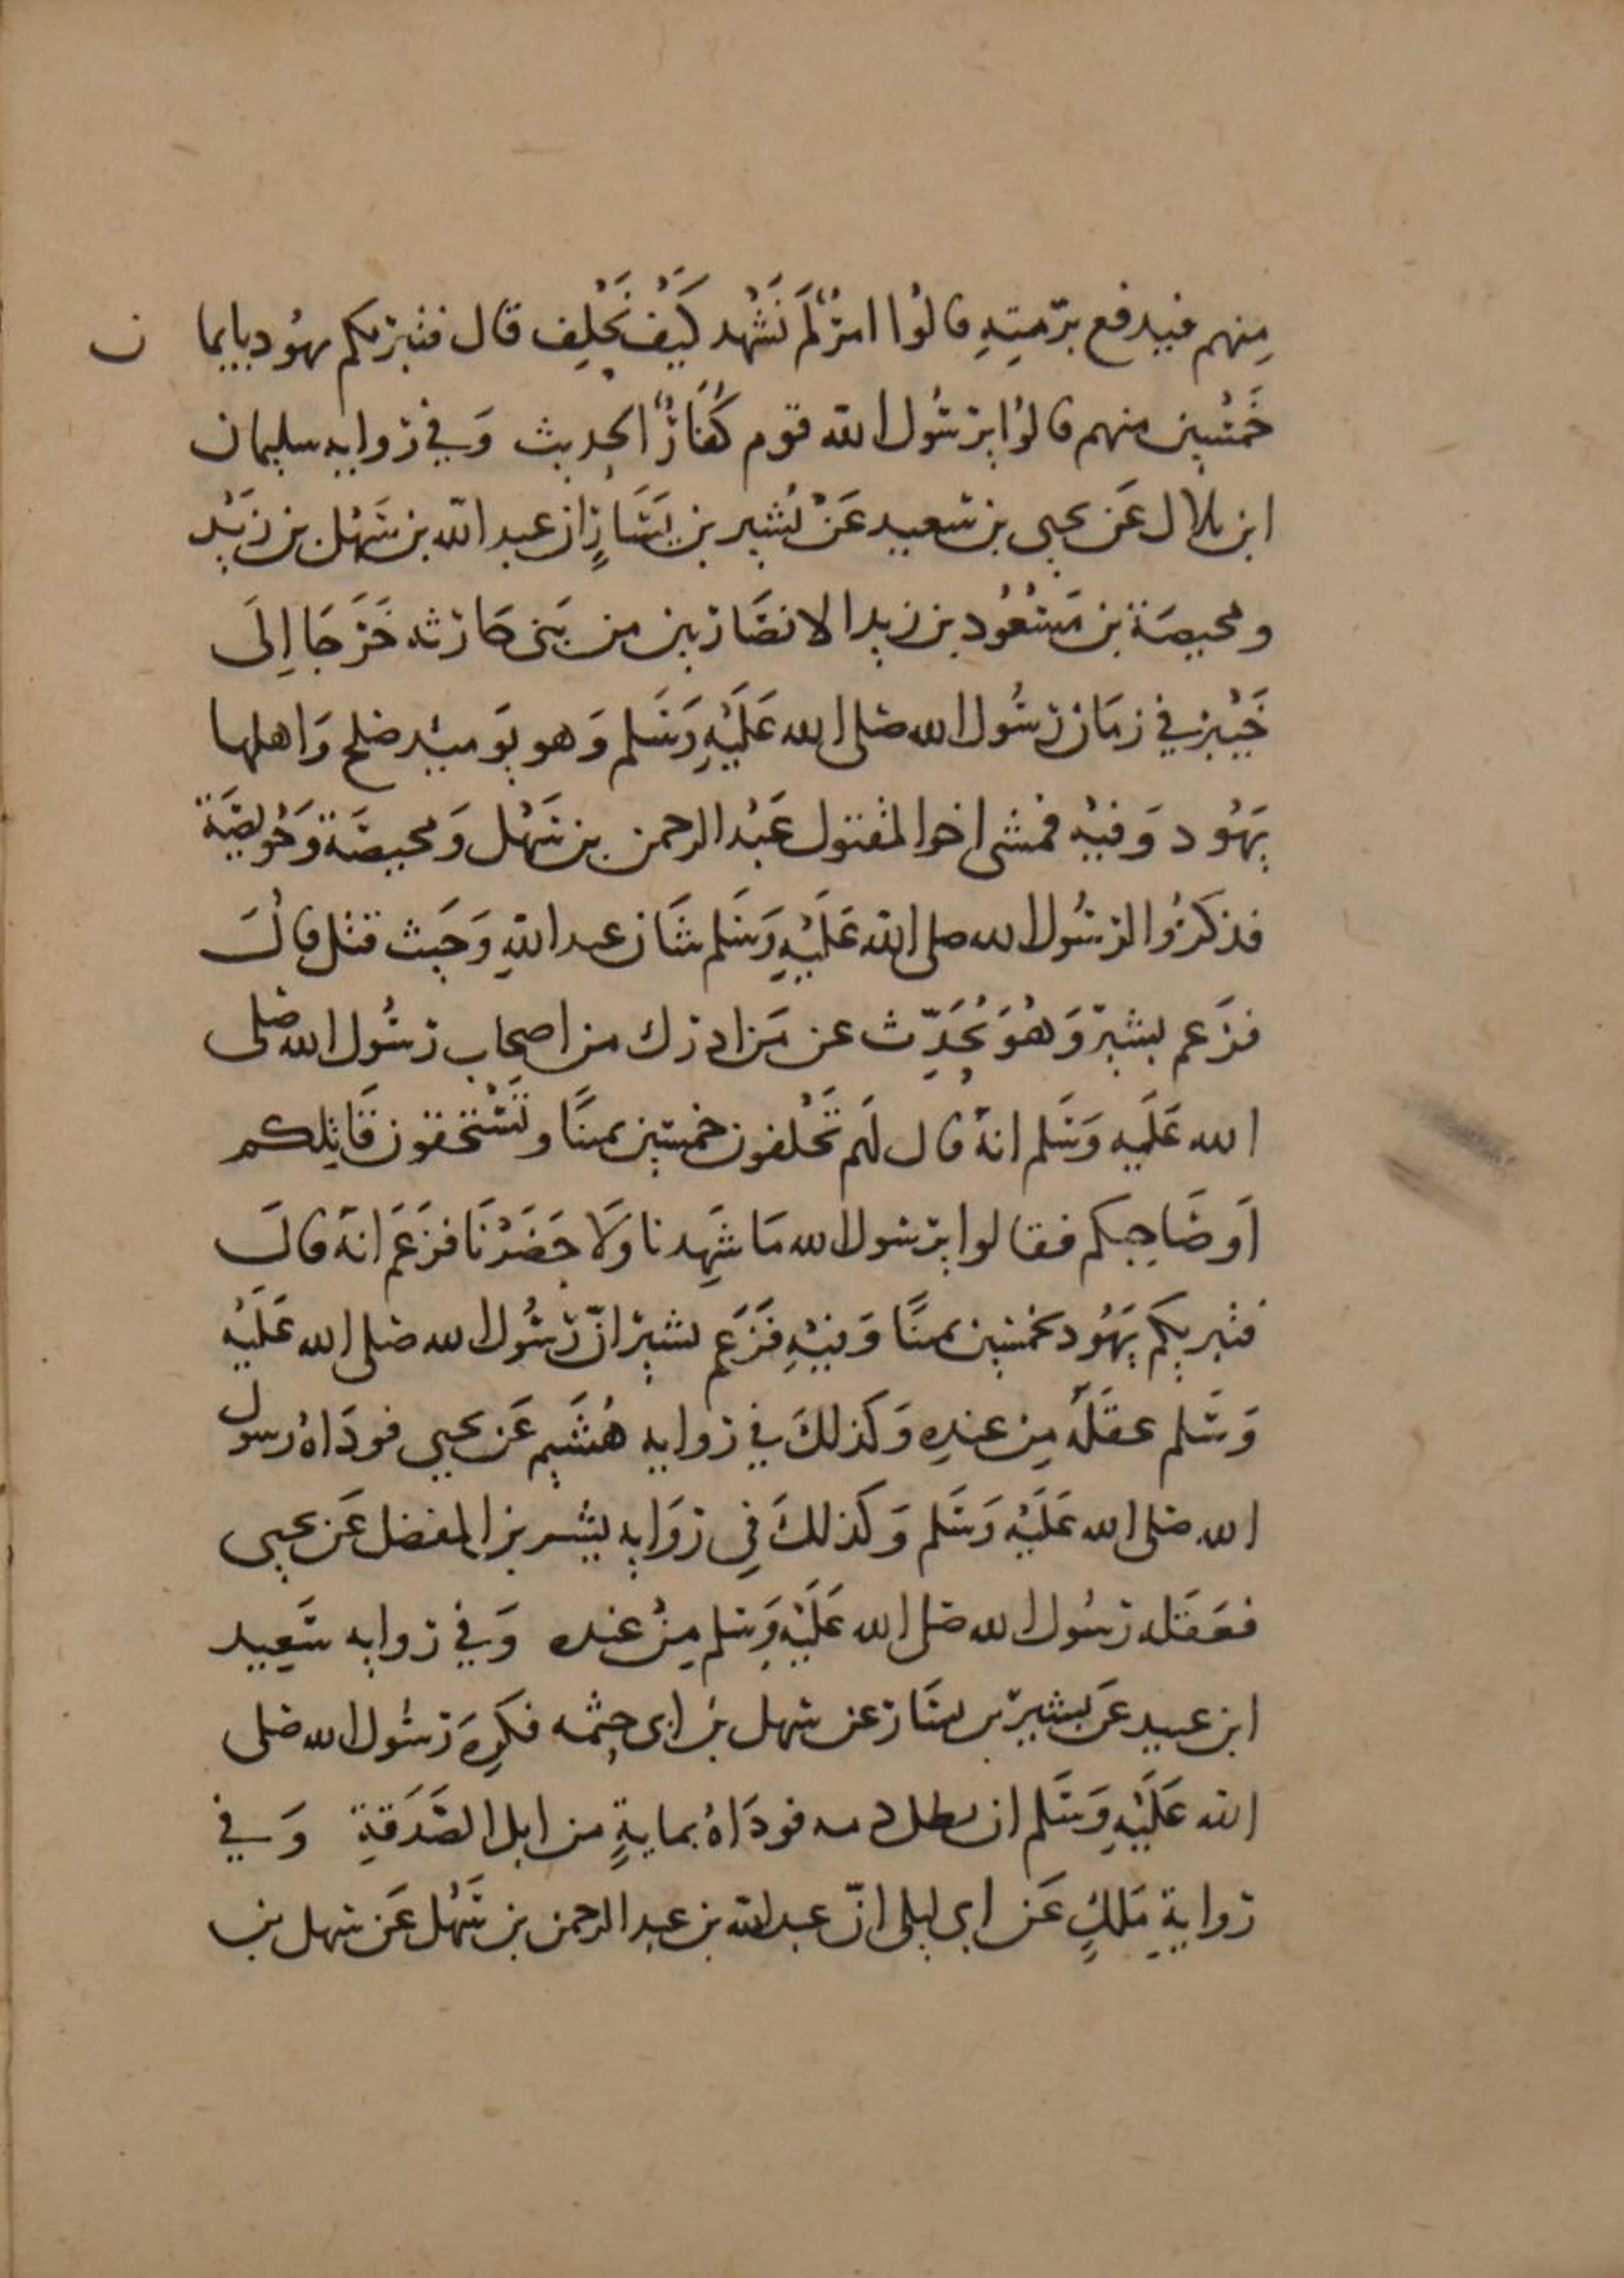 مِنهم فيدفع برّمتِهِ قالوُا امرٌ لَم نَشْهد كَيْف نَحْلِف قال فتبرئكم يهُود بايما ن
خَمْسين منهم قالوُا يرسُول الله قوم كُفَارٌ الحديث وَفي روايه سليمان
ابن بلال عَن يحيى بن سعيد عَنْ بُشير بن يَسَارٍ ان عبد الله بن سَهْل بن زيَد
ومحيصَة بن مَسْعُود بن زيد الانصَاريين من بَنى حَارثه خَرَجَا اِلَى
خَيْبر في زمَان رسُول الله صلى الله عَلَيْهِ وَسَلم وَهو يَوميئد صلح وَاهلها
يَهُود وَفيْه فمشى اخوا المقتول عَبْد الرحمن بن سَهْل وَمحيصَة وَحُويصَة
فذكَرُوا لرسُول الله صلى الله عَلَيْهِ وَسَلم شَان عبد اللهِ وَحَيث قتل قالَ
فزَعم بشير وَهُوَ يُحَدِّث عن مَن ادرك من اصحاب رسُول الله صلى
الله عَلَيه وَسَلم انهُ قال لَهم تَحْلفون خمسين يمينًا وَتَسْتحقون قَاتِلكم
اَو صَاحِبكم فقالوا يرسُول الله مَا شَهِدنا وَلَا حَضَرْنَا فزَعَمَ انهُ قالَ
فتبريكُم يَهُود بخمسين يمينًا وَفيْهِ فَزَعَم بشير انّ رسُول الله صلى الله عَلَيْه
وَسَلم عقَلَهُ مِن عندِه وَكذلكَ في روايه هُشَيم عَن يحيى فودَاهُ رسول
الله صلى الله عَلَيْه وَسَلم وَكَذلكَ فِي روَايه بِشر بن المفضل عَن يحيى
فعَقَله رسُول الله صلى الله عَلَيْهِ وَسلم مِنْ عنده وَفي روايه سَعِيد
ابن عبيد عَن بشير بن يسَار عن سَهل بن ابى حثمه فكَرِهَ رسُول الله صلى
الله عَلَيْهِ وَسَلم ان يطل دمه فودَاهُ بمايةٍ من ابل الصَدَقةِ وَفي
روايةِ مَلكٍ عَن ابى ليلى انّ عبد الله بن عبد الرحمن بن سَهْل عَن سَهل بن